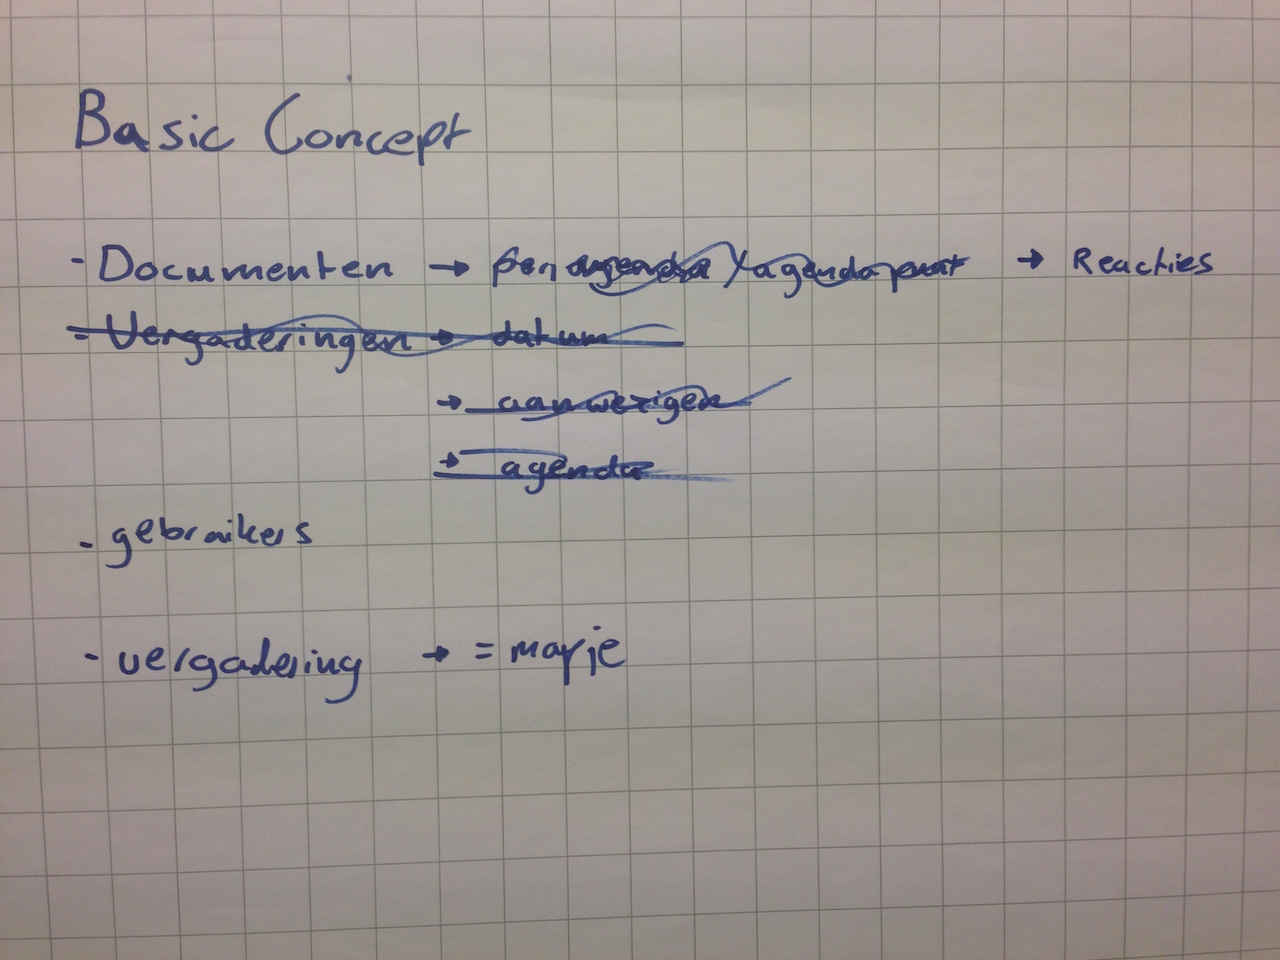 Basic Concept
- Documenten → per agenda / agendapunt → Reacties
- Vergaderingen → datum
→ aanwezigen
→ agenda
- gebruikers
- vergadering → = mapje